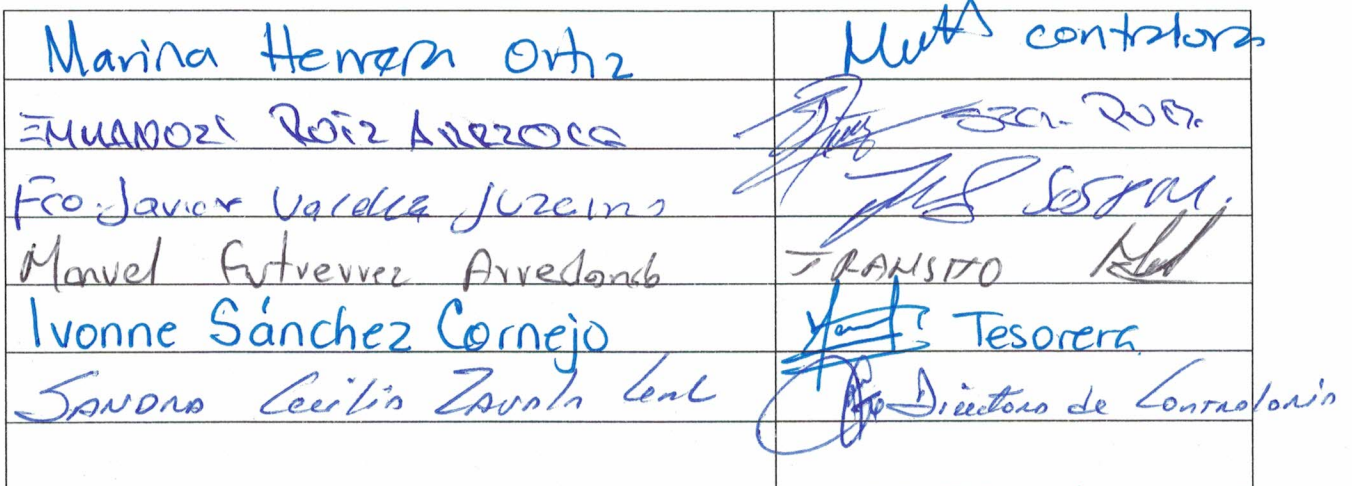 Marina Herrera Ortiz contralora
Ruiz
Fco. Javier Valdez
Manuel Gutierrez Arredondo TRANSITO
Ivonne Sánchez Cornejo Tesorera
SANDRA Cecilia ZAVALA Leal Directora de Contraloria